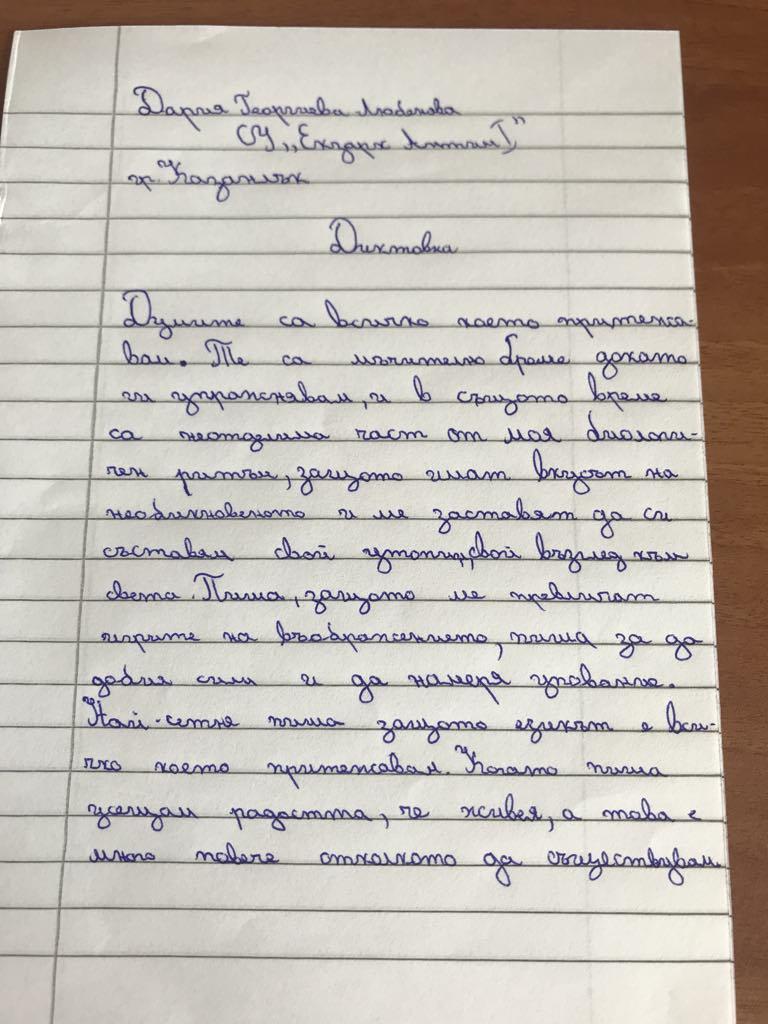 Дария Георгиева Любенова
СУ „Екзарх Антим I"
гр. Казанлък
Диктовка
Думите са всичко което притежа-
вам. Те са мъчително бреме докато
ги упражнявам, и в същото време
са неотделима част от моя биологи-
чен ритъм, защото имат вкусът на
необикновеното и ме заставят да си
съставям свой възглед към
света. Пиша, защото ме привличат
игрите на въображението, пиша за да
добия сили и да намеря упование.
Най-сетне пиша защото езикът е вси-
чко което притежавам. Когато пиша
усещам радостта, че живея, а това е
много повече отколкото да съществувам.